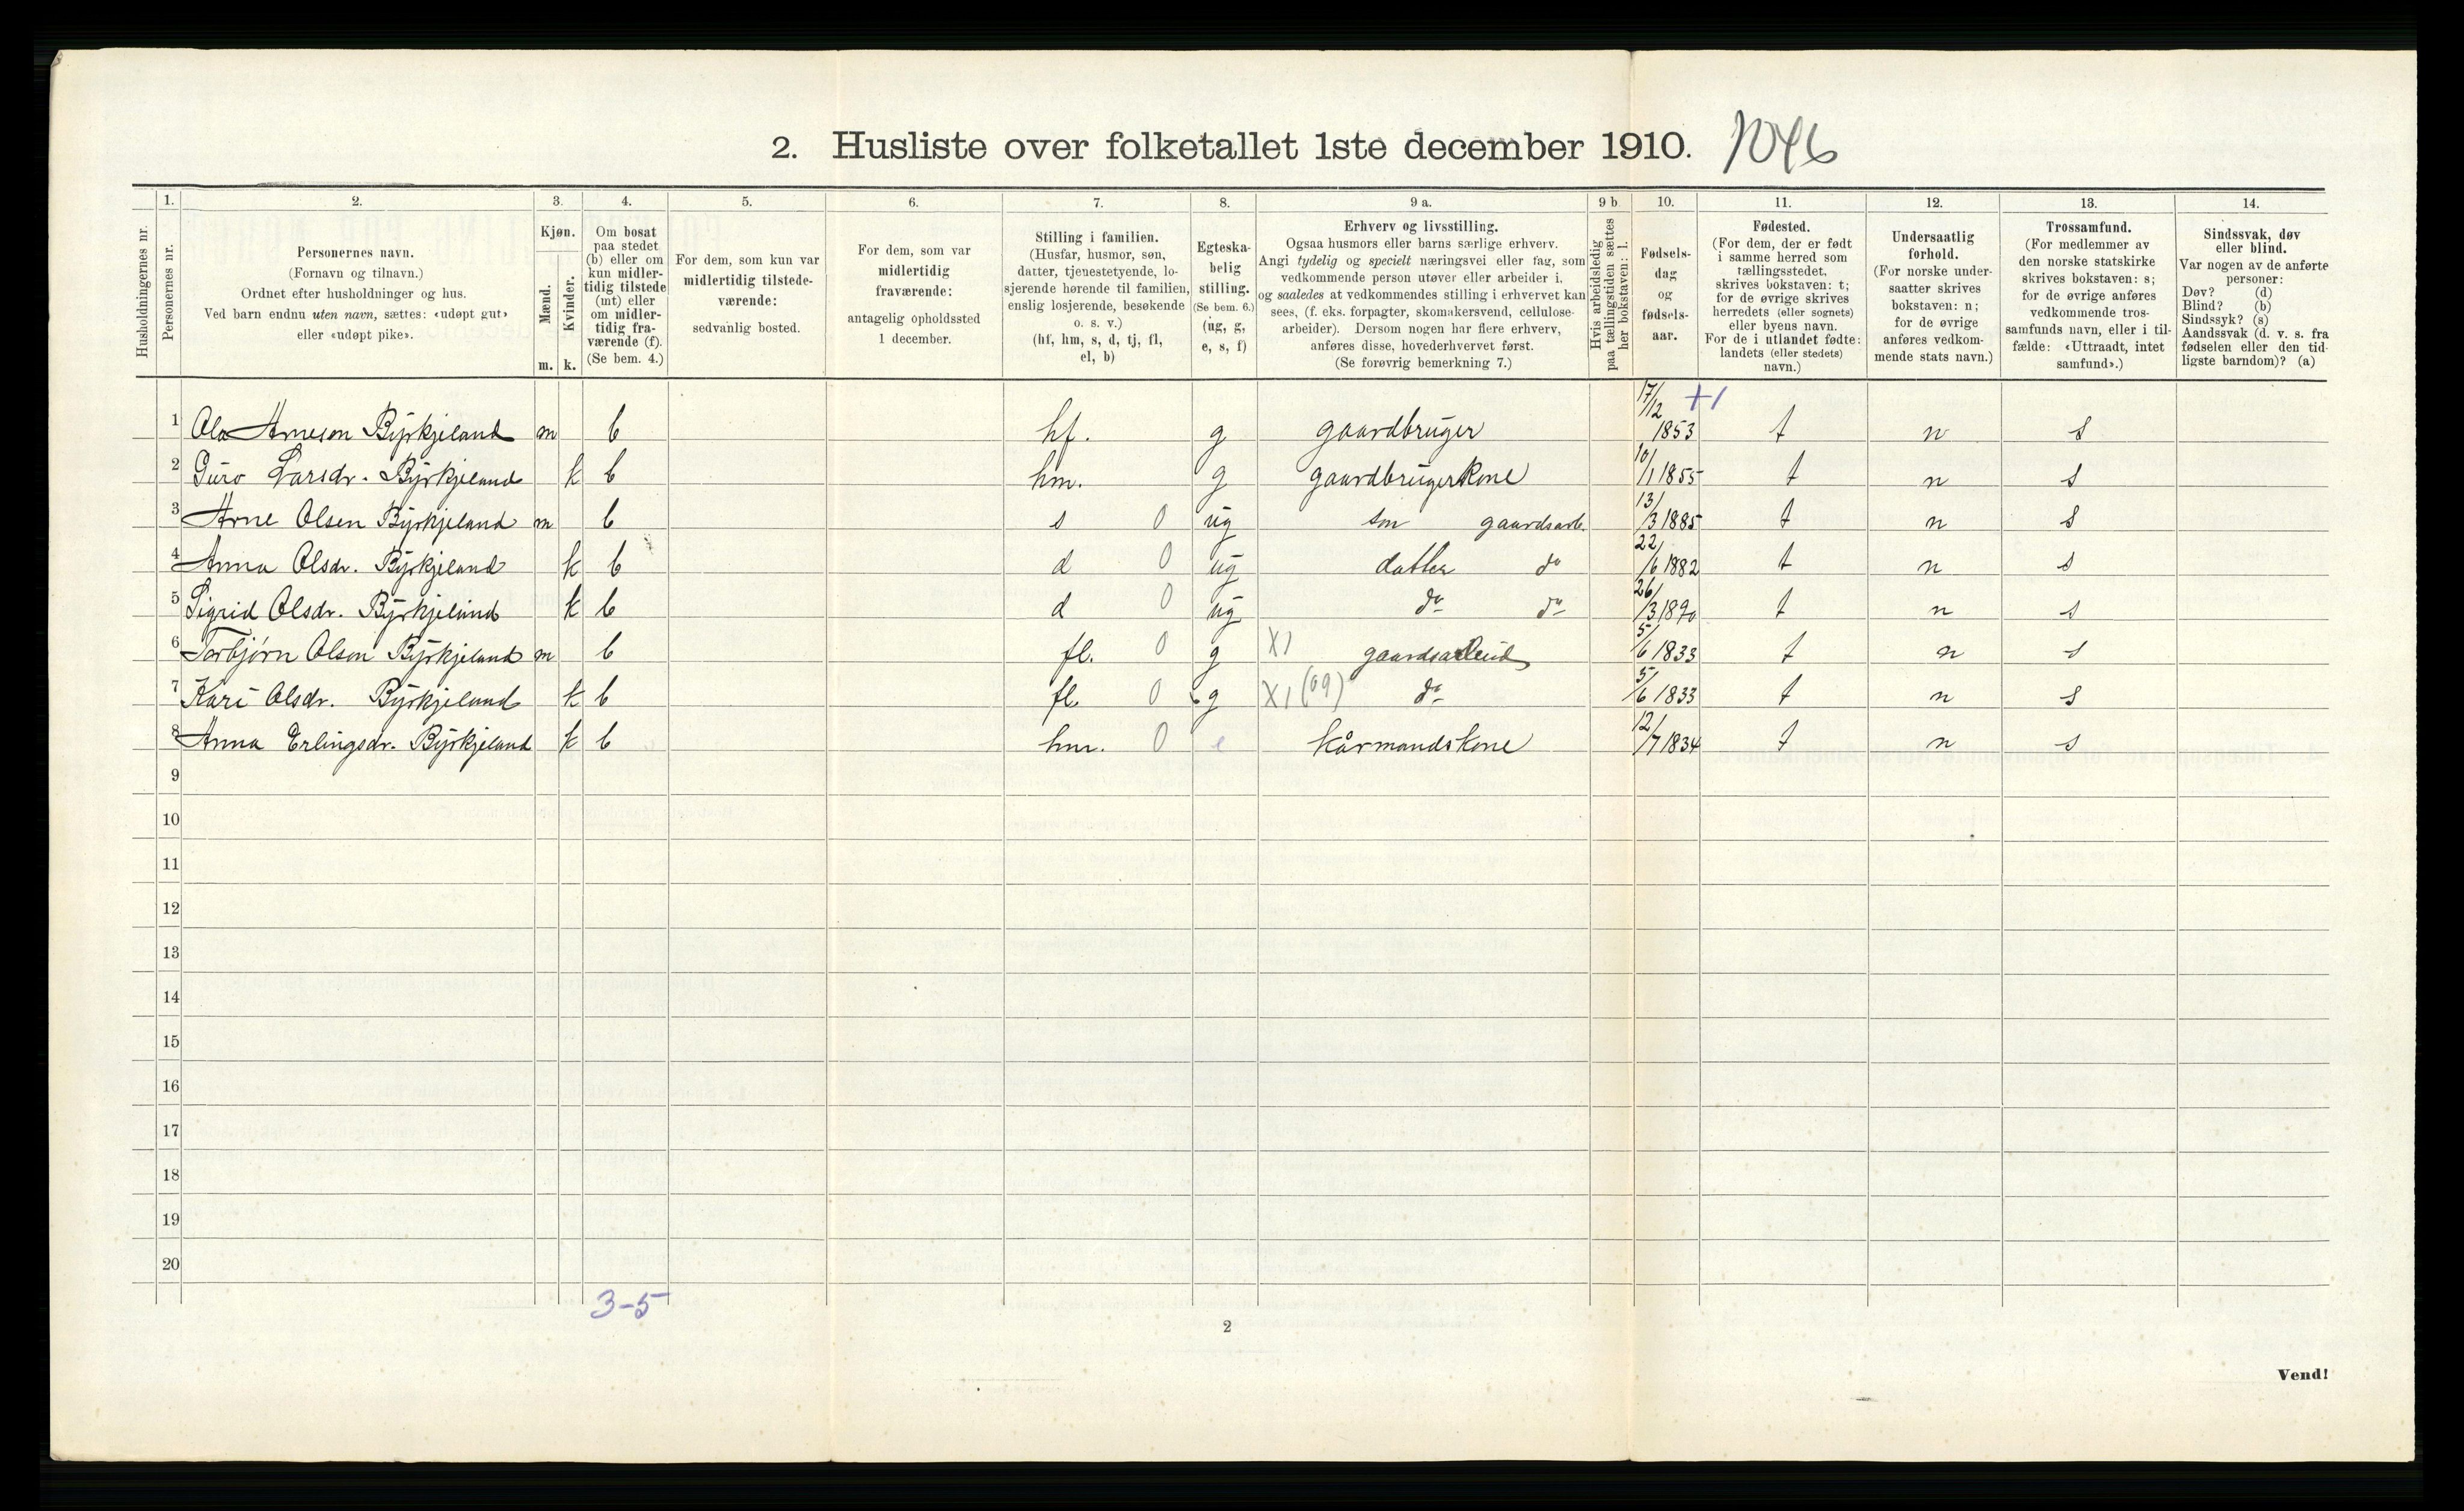 2. Husliste over folketallet 1ste december 1910. 1046
1. 2. 3. 4. 5. 6. 7. 8. 9 a. 9 b. 10. 11. 12. 13. 14.
Husholdningernes nr.
Personernes nr.
Personernes navn.
(Fornavn og tilnavn.)
Ordnet efter husholdninger og hus.
Ved barn endnu uten navn, sættes: «udøpt gut»
eller «udøpt pike».
Kjøn.
Mænd.
Kvinder.
m. k.
Om bosat
paa stedet
(b) eller om
kun midler-
tidig tilstede
(mt) eller
om midler-
tidig fra-
værende (f).
(Se bem. 4.)
For dem, som kun var
midlertidig tilstede-
værende:
sedvanlig bosted.
For dem, som var
midlertidig
fraværende:
antagelig opholdssted
1 december.
Stilling i familien.
(Husfar, husmor, søn,
datter, tjenestetyende, lo-
sjerende hørende til familien,
enslig losjerende, besøkende
o. s. v.)
(hf, hm, s, d, tj, fl,
el, b)
Egteska-
belig
stilling.
(Se bem. 6.)
(ug, g,
e, s, f)
Erhverv og livsstilling.
Ogsaa husmors eller barns særlige erhverv.
Angi tydelig og specielt næringsvei eller fag, som
vedkommende person utøver eller arbeider i,
og saaledes at vedkommendes stilling i erhvervet kan
sees, (f. eks. forpagter, skomakersvend, cellulose-
arbeider). Dersom nogen har flere erhverv,
anføres disse, hovederhvervet først.
(Se forøvrig bemerkning 7.)
Hvis arbeidsledig
paa tællingstiden sættes
her bokstaven: l.
Fødsels-
dag
og
fødsels-
aar.
Fødested.
(For dem, der er født
i samme herred som
tællingsstedet,
skrives bokstaven: t;
for de øvrige skrives
herredets (eller sognets)
eller byens navn.
For de i utlandet fødte:
landets (eller stedets)
navn.)
Undersaatlig
forhold.
(For norske under-
saatter skrives
bokstaven: n;
for de øvrige
anføres vedkom-
mende stats navn.)
Trossamfund.
(For medlemmer av
den norske statskirke
skrives bokstaven: s;
for de øvrige anføres
vedkommende tros-
samfunds navn, eller i til-
fælde: «Uttraadt, intet
samfund».)
Sindssvak, døv
eller blind.
Var nogen av de anførte
personer:
Døv? (d)
Blind? (b)
Sindssyk? (s)
Aandssvak (d. v. s. fra
fødselen eller den tid-
ligste barndom)? (a)
1 Ola Arneson Byrkjeland m b hf. g gaardbruger 17/12 1853 t n s
2 Guro Larsdr. Byrkjeland k b hm. g gaardbrugerkone 10/1 1855 t n s
3 Arne Olsen Byrkjeland m b s 0 ug søn gaardsarb. 13/3 1885 t n s
4 Anna Olsdr. Byrkjeland k b d 0 ug datter do 22/6 1882 t n s
5 Sigrid Olsdr. Byrkjeland k b d 0 ug do do 26/3 1890 t n s
6 Torbjørn Olson Byrkjeland m b fl. 0 g X1 gaardsarbeid 5/6 1833 t n s
7 Kari Olsdr. Byrkjeland k b fl. 0 g X1 (09) do 5/6 1833 t n s
8 Anna Erlingsdr. Byrkjeland k b hm. 0 e kårmandskone 12/7 1834 t n s
9
10
11
12
13
14
15
16
17
18
19
20
3-5
2
Vend!